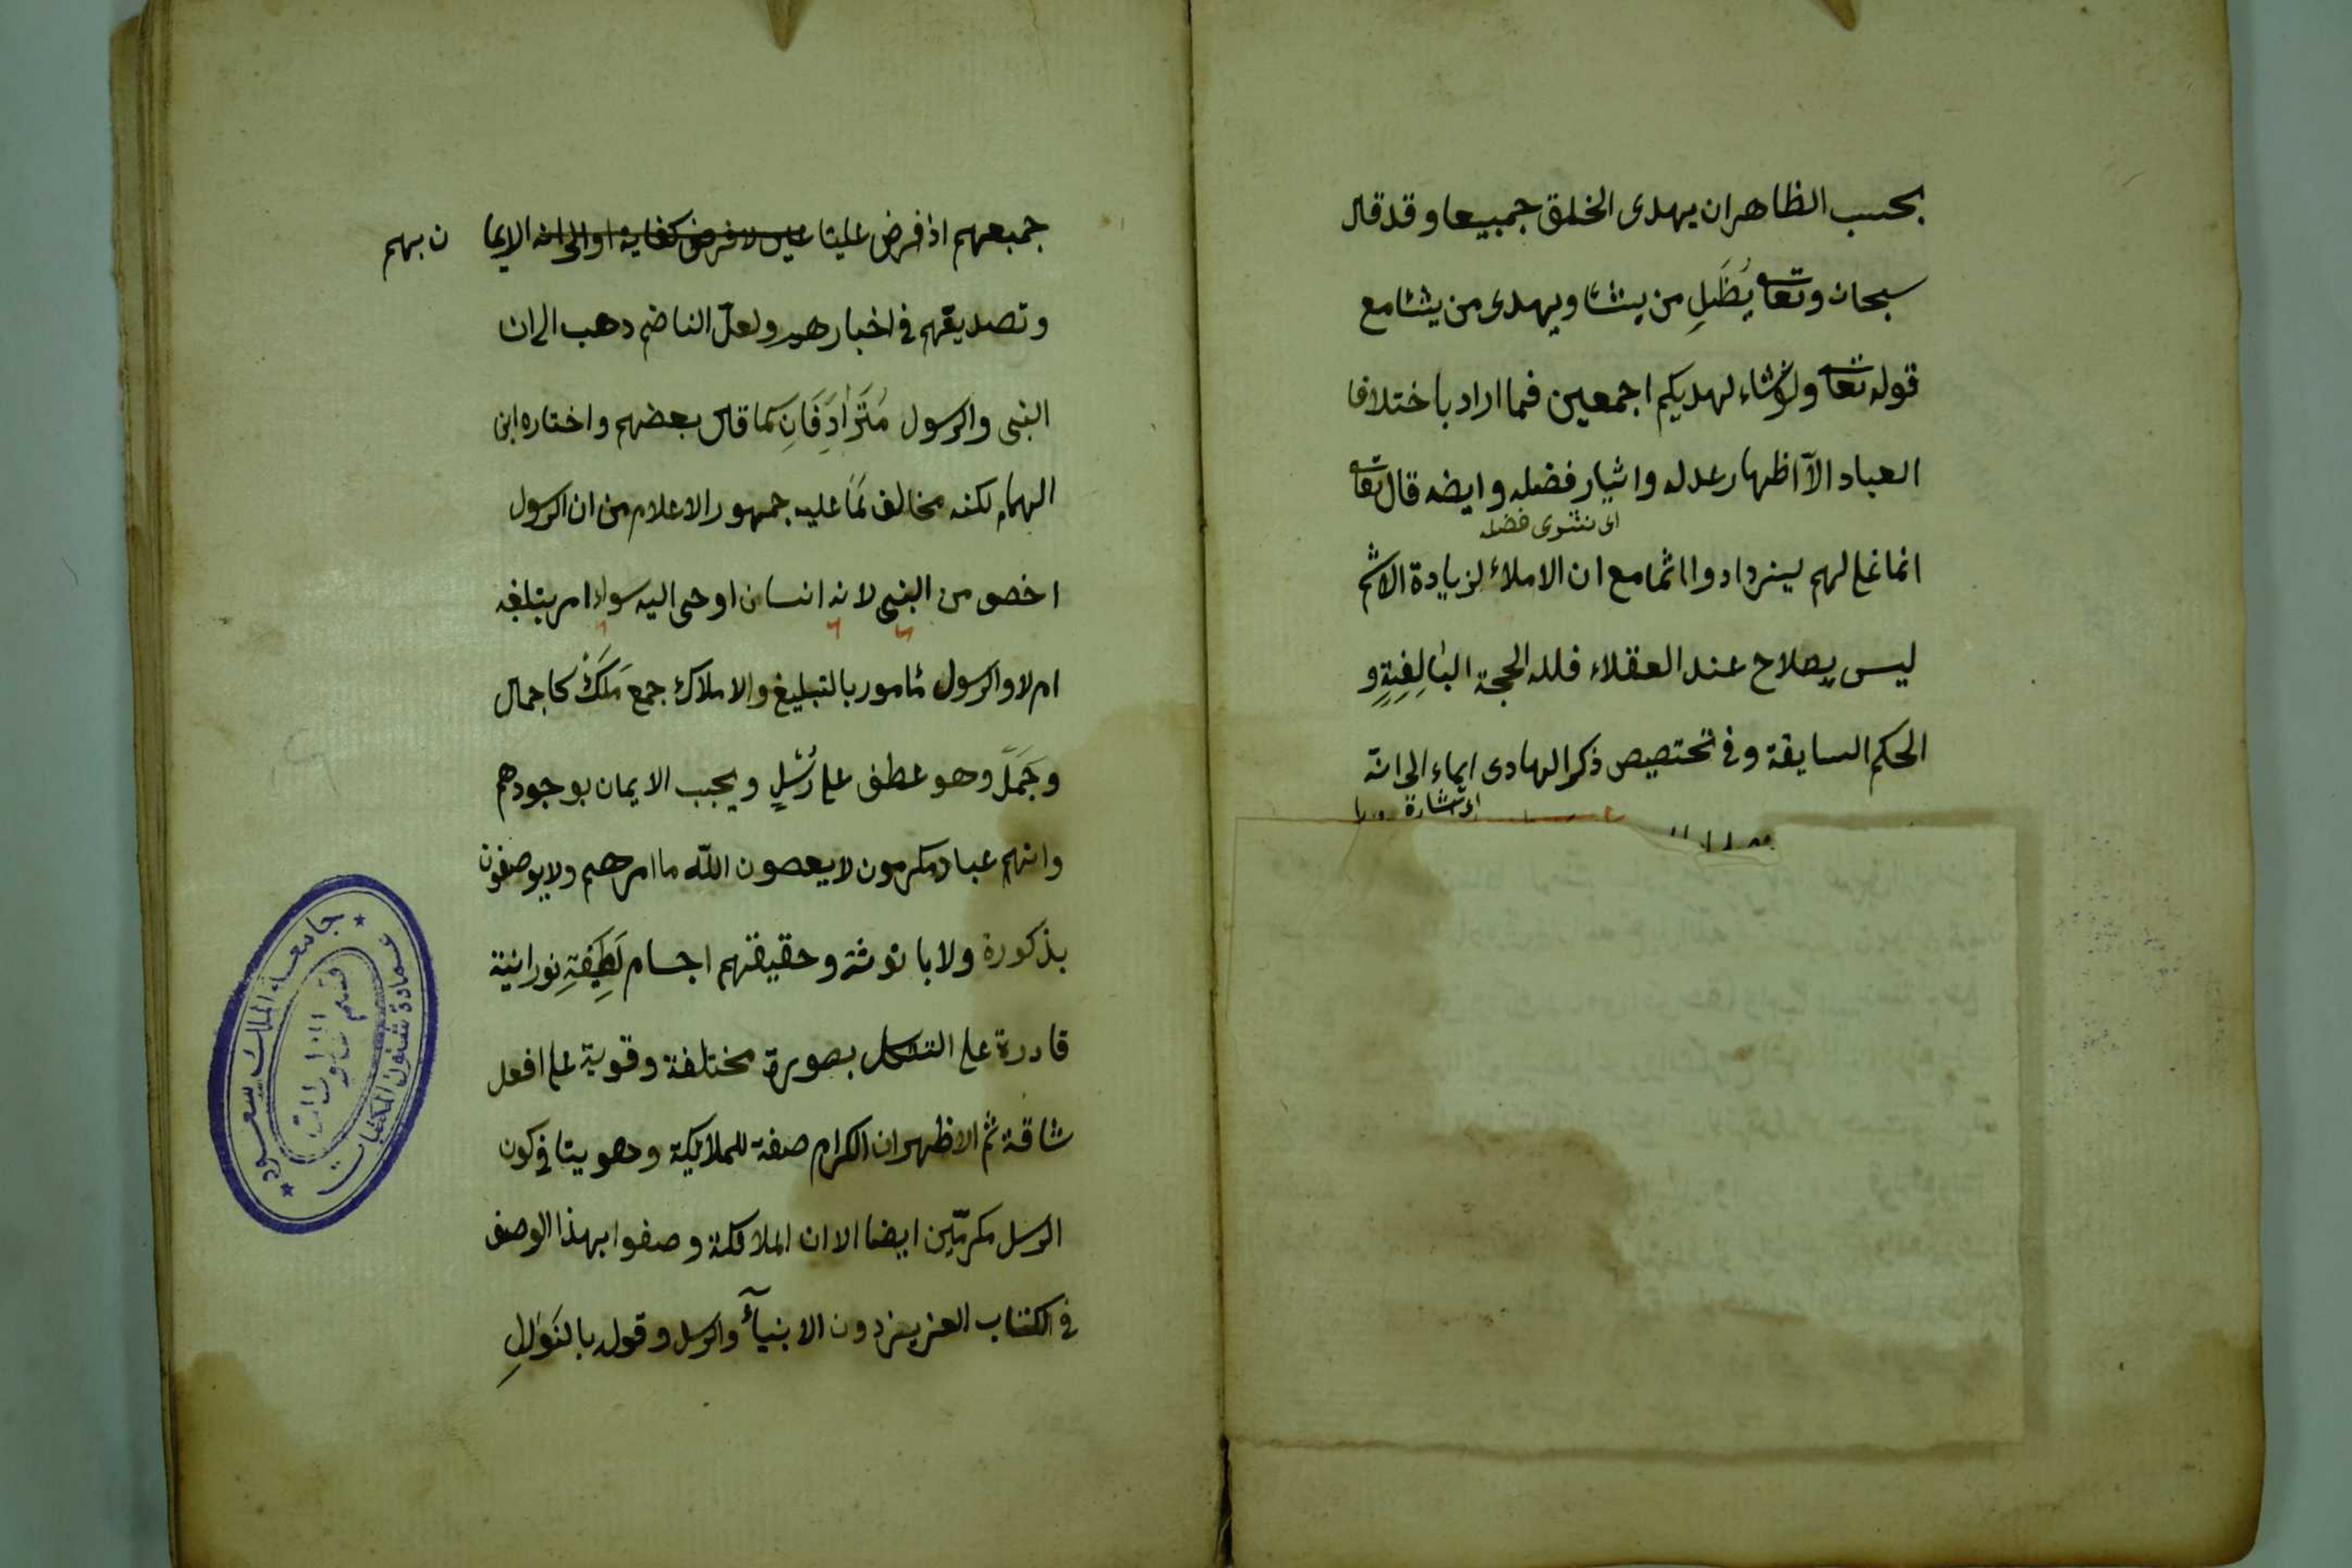 بحسب الظاهر ان يهدى الخلق جميعا وقد قال
سبحان وتعالى يُظَلِ من يشا ويهدى من يشا مع
قوله تعالى ولو شاء لهديكم اجمعين فما اراد باختلاف
العباد الآ اظهار عدله واثيار فضله وايضه قال تعالى
اى نشرى فضله
انما نملى لهم ليزدادوا اثما مع ان الاملاء لزيادة الاثم
ليس بصلاح عند العقلاء فلله الحجة البالِغةِ و
الحكم السابقة وفى تحتصيص ذكر الهادى ايماء الى انه
اى اشارة
جميعهم اذ فرض علينا عين لا فرض كفاية او الى انه الايما ن بهم
وتصديقهم فى اخبارهم ولعلّ الناضم دهب الى ان
النبى والرسول مُتَرَادِفَانِ كما قال بعضهم واختاره ابن
الهمام لكنه مخالف لَمَا عليه جمهور الاعلام من ان الرسول
اخص من النبى لانه انسان اوحى اليه سواء امر بتبلغه
ام لا والرسول مأمور بالتبليغ والاملاك جمع مَلَكْ كاجمال
وجَمَلً وهو عطف على رُسُلٍ ويجب الايمان بوجودهم
وانهم عباد مكرمون لا يعصون اللّه ما امرهم ولا يوصفون
بذكورة ولا بانوثة وحقيقتهم اجسام لَطِيفةِ نورانية
قادرة على التشكل بصورة مختلفة وقوية على افعل
شاقة ثم الاظهر ان الكرام صفة للملائكة وهو يتافى كون
الرسل مكرمّين ايضا الا ان الملائكة وصفوا بهذا الوصف
فى الكتاب العزيز دون الانبيآء والرسل وقوله بالنَوَالِ
جامعة الملك سعود
عمادة شئون المكتبات
قسم المخطوطات